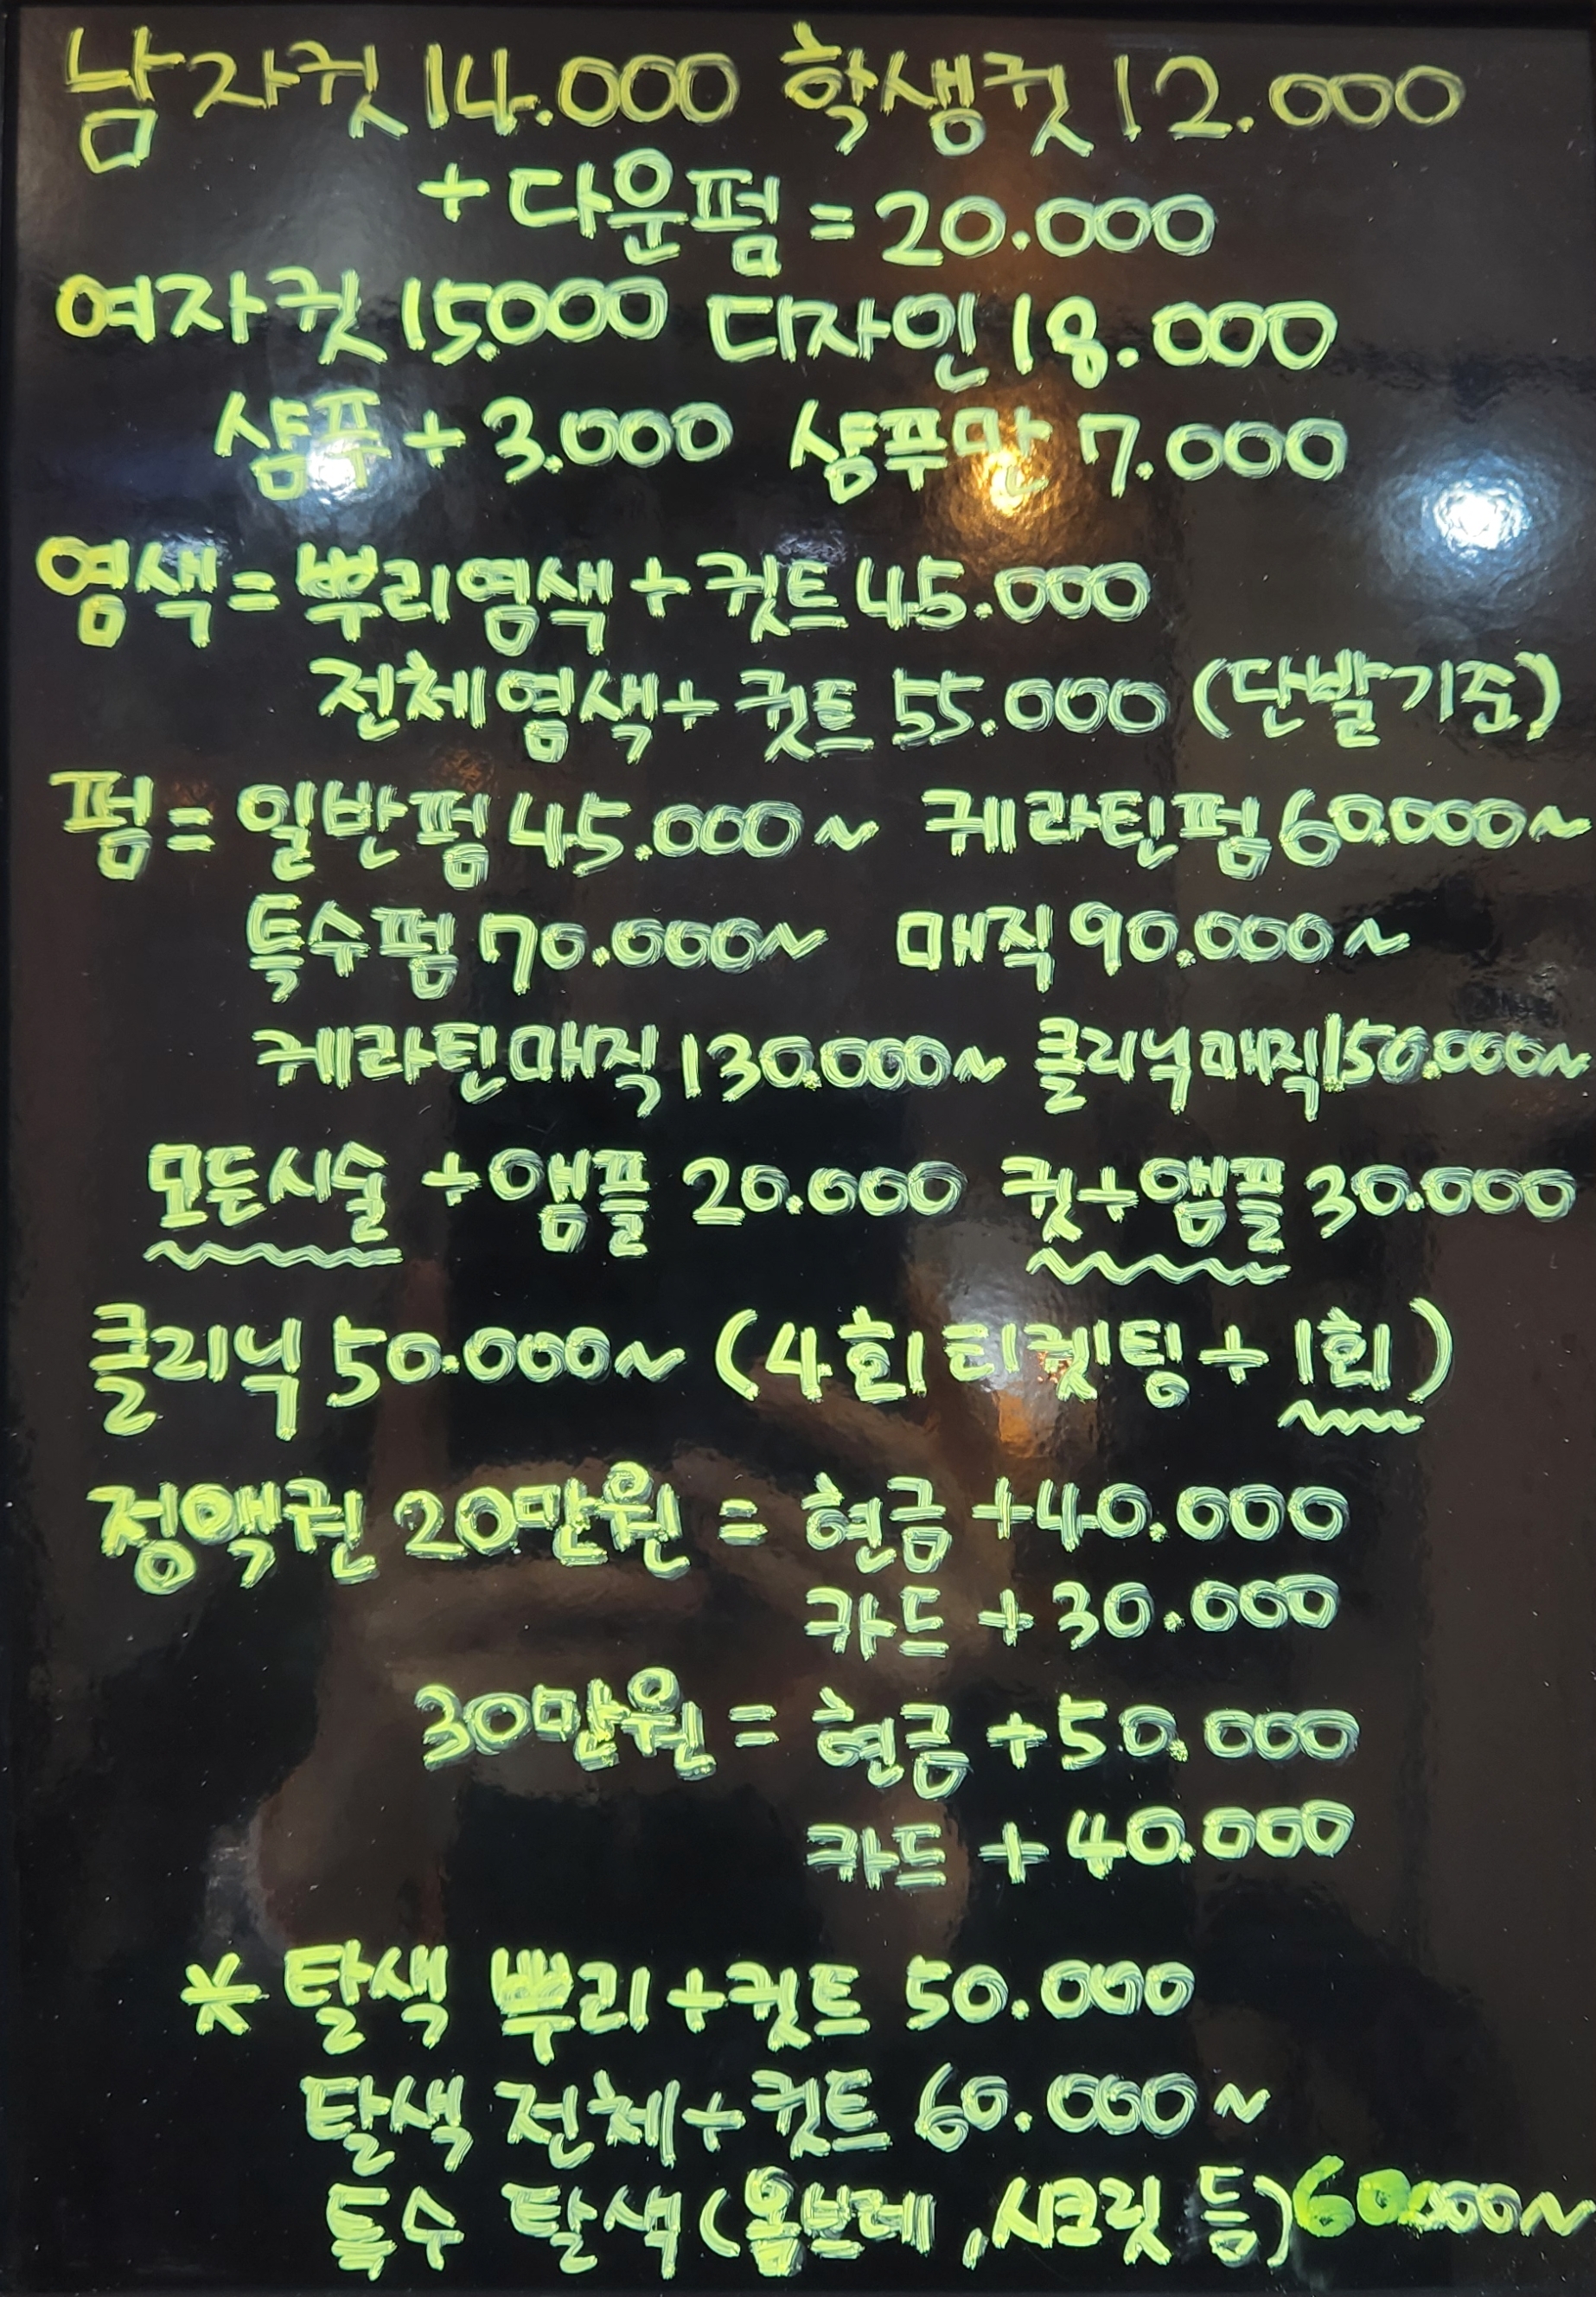 남자컷 14.000 학생컷 12.000
+ 다운펌 = 20.000
여자컷 15.000 디자인 18.000
샴푸 + 3.000 샴푸만 7.000
염색 = 뿌리염색 + 컷트 45.000
전체염색 + 컷트 55.000 (단발기준)
펌 = 일반펌 45.000~ 케라틴펌 60.000~
특수펌 70.000~ 매직 90.000~
케라틴매직 130.000~ 클리닉매직 150.000~
모든시술 + 앰플 20.000 컷+앰플 30.000
클리닉 50.000~ (4회 티켓팅 + 1회)
정액권 20만원 = 현금 +40.000
카드 + 30.000
30만원 = 현금 +50.000
카드 + 40.000
* 탈색 뿌리+컷트 50.000
탈색 전체+컷트 60.000~
특수 탈색(옴브레, 시크릿 등) 60.000~